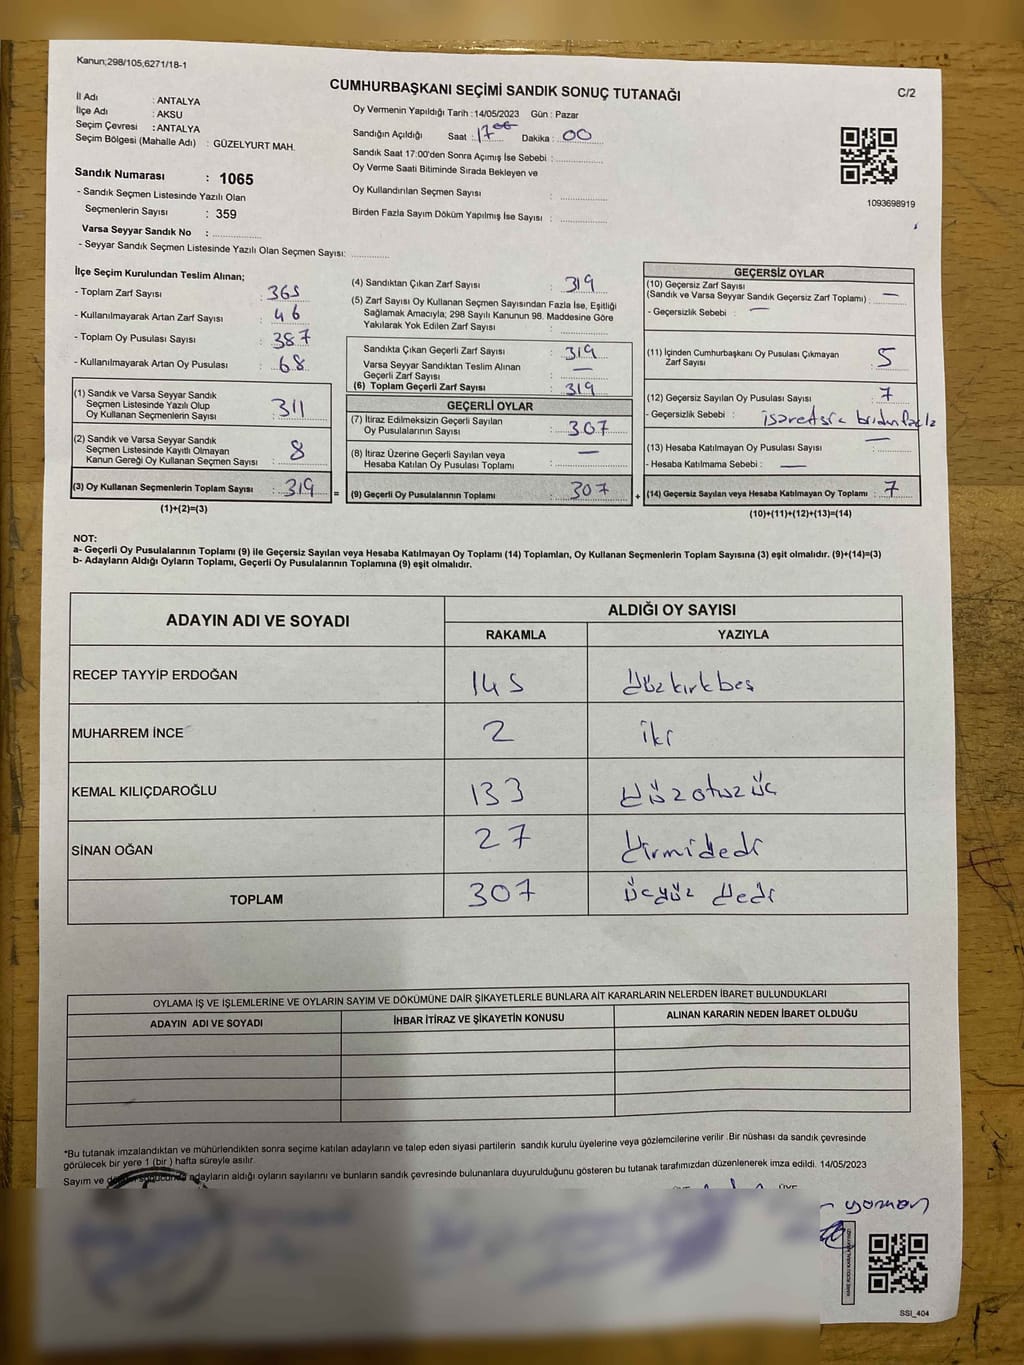 Kanun;298/105,6271/18-1
CUMHURBAŞKANI SEÇİMİ SANDIK SONUÇ TUTANAĞI
C/2
İl Adı : ANTALYA
İlçe Adı : AKSU
Seçim Çevresi : ANTALYA
Seçim Bölgesi (Mahalle Adı) : GÜZELYURT MAH.
Sandık Numarası : 1065
- Sandık Seçmen Listesinde Yazılı Olan
Seçmenlerin Sayısı : 359
Varsa Seyyar Sandık No :
- Seyyar Sandık Seçmen Listesinde Yazılı Olan Seçmen Sayısı:
Oy Vermenin Yapıldığı Tarih :14/05/2023 Gün : Pazar
Sandığın Açıldığı Saat : 17⁰⁰ Dakika : 00
Sandık Saat 17:00'den Sonra Açımış İse Sebebi :
Oy Verme Saati Bitiminde Sırada Bekleyen ve
Oy Kullandırılan Seçmen Sayısı :
Birden Fazla Sayım Döküm Yapılmış İse Sayısı :
1093698919
İlçe Seçim Kurulundan Teslim Alınan;
- Toplam Zarf Sayısı : 365
- Kullanılmayarak Artan Zarf Sayısı : 46
- Toplam Oy Pusulası Sayısı : 387
- Kullanılmayarak Artan Oy Pusulası : 68
(1) Sandık ve Varsa Seyyar Sandık
Seçmen Listesinde Yazılı Olup
Oy Kullanan Seçmenlerin Sayısı : 311
(2) Sandık ve Varsa Seyyar Sandık
Seçmen Listesinde Kayıtlı Olmayan
Kanun Gereği Oy Kullanan Seçmen Sayısı : 8
(3) Oy Kullanan Seçmenlerin Toplam Sayısı : 319 =
(1)+(2)=(3)
(4) Sandıktan Çıkan Zarf Sayısı : 319
(5) Zarf Sayısı Oy Kullanan Seçmen Sayısından Fazla İse, Eşitliği
Sağlamak Amacıyla; 298 Sayılı Kanunun 98. Maddesine Göre
Yakılarak Yok Edilen Zarf Sayısı :
Sandıkta Çıkan Geçerli Zarf Sayısı : 319
Varsa Seyyar Sandıktan Teslim Alınan
Geçerli Zarf Sayısı : —
(6) Toplam Geçerli Zarf Sayısı : 319
GEÇERLİ OYLAR
(7) İtiraz Edilmeksizin Geçerli Sayılan
Oy Pusulalarının Sayısı : 307
(8) İtiraz Üzerine Geçerli Sayılan veya
Hesaba Katılan Oy Pusulası Toplamı : —
(9) Geçerli Oy Pusulalarının Toplamı : 307 +
GEÇERSİZ OYLAR
(10) Geçersiz Zarf Sayısı
(Sandık ve Varsa Seyyar Sandık Geçersiz Zarf Toplamı) : —
- Geçersizlik Sebebi : —
(11) İçinden Cumhurbaşkanı Oy Pusulası Çıkmayan
Zarf Sayısı : 5
(12) Geçersiz Sayılan Oy Pusulası Sayısı : 7
- Geçersizlik Sebebi :
(13) Hesaba Katılmayan Oy Pusulası Sayısı : —
- Hesaba Katılmama Sebebi : —
(14) Geçersiz Sayılan veya Hesaba Katılmayan Oy Toplamı : 7
(10)+(11)+(12)+(13)=(14)
NOT:
a- Geçerli Oy Pusulalarının Toplamı (9) ile Geçersiz Sayılan veya Hesaba Katılmayan Oy Toplamı (14) Toplamları, Oy Kullanan Seçmenlerin Toplam Sayısına (3) eşit olmalıdır. (9)+(14)=(3)
b- Adayların Aldığı Oyların Toplamı, Geçerli Oy Pusulalarının Toplamına (9) eşit olmalıdır.
ADAYIN ADI VE SOYADI
ALDIĞI OY SAYISI
RAKAMLA YAZIYLA
RECEP TAYYİP ERDOĞAN 145 yüzkırkbeş
MUHARREM İNCE 2 iki
KEMAL KILIÇDAROĞLU 133 yüzotuzüç
SİNAN OĞAN 27 yirmiyedi
TOPLAM 307 üçyüz yedi
OYLAMA İŞ VE İŞLEMLERİNE VE OYLARIN SAYIM VE DÖKÜMÜNE DAİR ŞİKAYETLERLE BUNLARA AİT KARARLARIN NELERDEN İBARET BULUNDUKLARI
ADAYIN ADI VE SOYADI İHBAR İTİRAZ VE ŞİKAYETİN KONUSU ALINAN KARARIN NEDEN İBARET OLDUĞU
*Bu tutanak imzalandıktan ve mühürlendikten sonra seçime katılan adayların ve talep eden siyasi partilerin sandık kurulu üyelerine veya gözlemcilerine verilir .Bir nüshası da sandık çevresinde
görülecek bir yere 1 (bir ) hafta süreyle asılır.
Sayım ve döküm sonucunda adayların aldığı oyların sayılarını ve bunların sandık çevresinde bulunanlara duyurulduğunu gösteren bu tutanak tarafımızdan düzenlenerek imza edildi. 14/05/2023
SSI_404